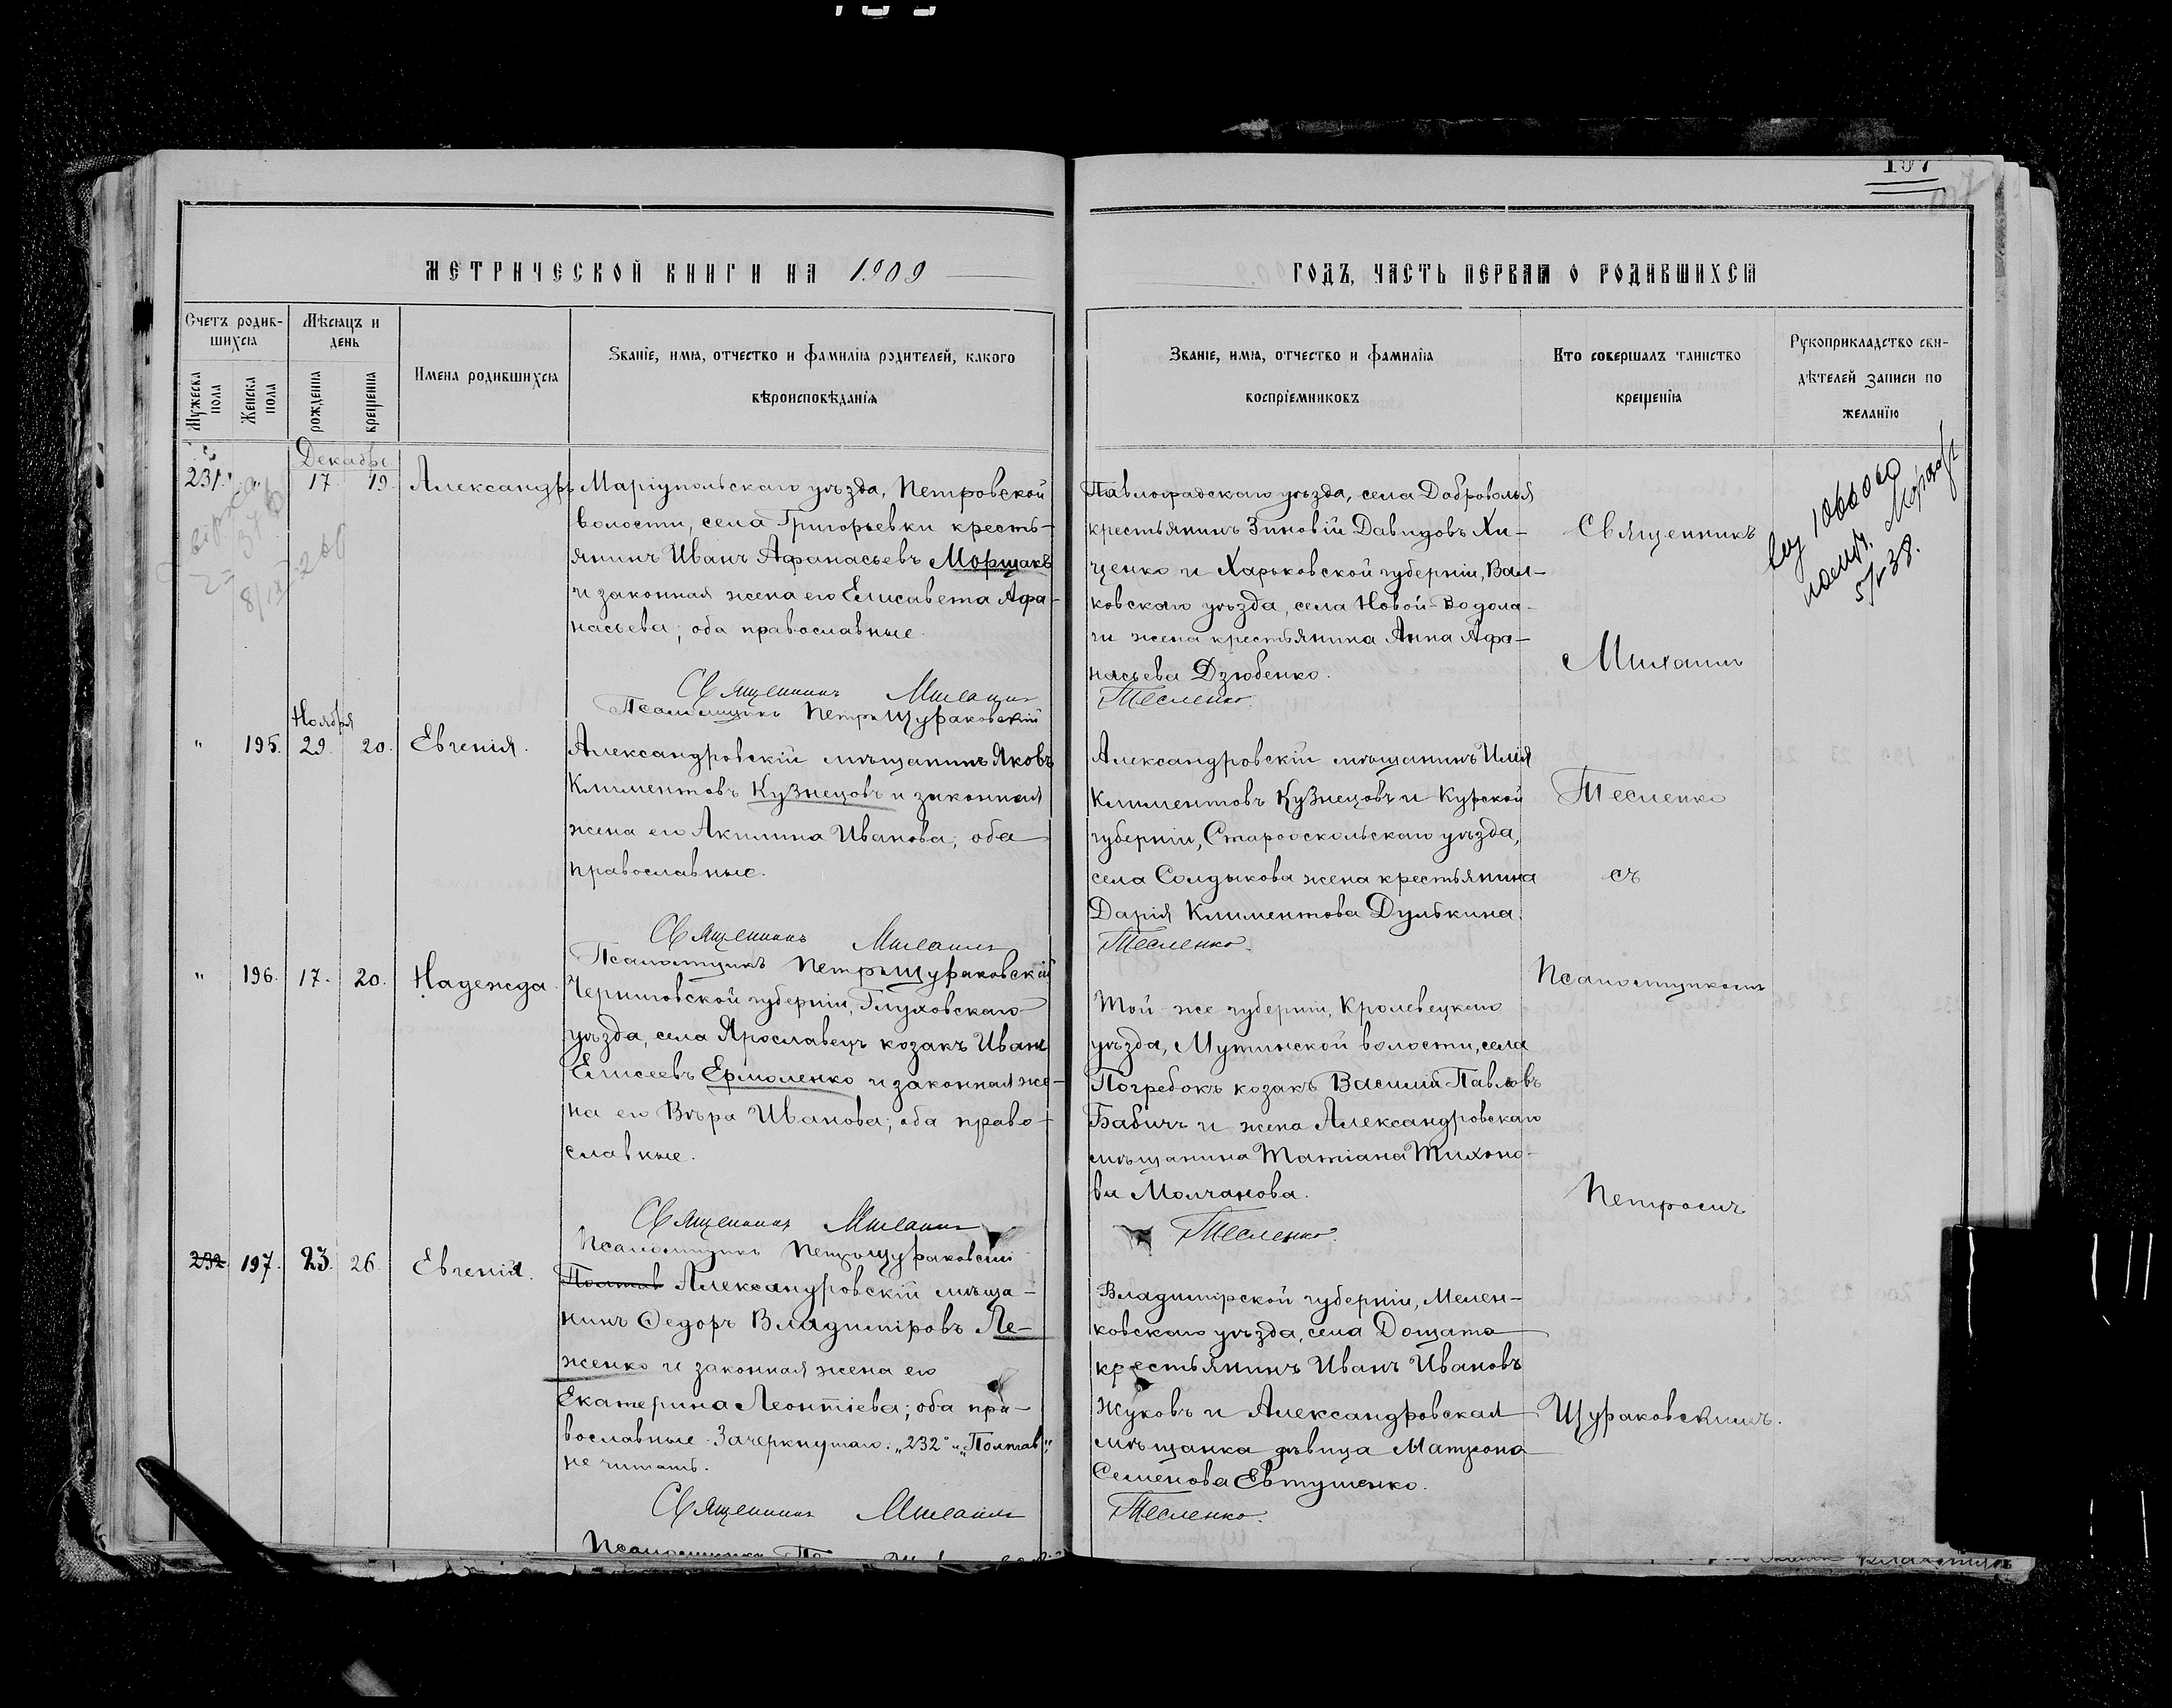 197
МЕТРИЧЕСКОЙ КНИГИ НА 1909
ГОДЪ, ЧАСТЬ ПЕРВАЯ О РОДИВШИХСЯ
Счетъ родив-
шихся
Мужеска пола
Женска пола
Мѣсяцъ и
день
рожденія
крещенія
Имена родившихся
Званіе, имя, отчество и фамилія родителей, какого
вѣроисповѣданія
Званіе, имя, отчество и фамилія
воспріемниковъ
Кто совершалъ таинство
крещенія
Рукоприкладство сви-
дѣтелей записи по
желанію
Декабрь
231. " 17. 19. Александръ
Маріупольскаго уѣзда, Петровской
волости, села Григорьевки кресть-
янинъ Иванъ Афанасьевъ Моршакъ
и законная жена его Елисавета Афа-
насьева; оба православные.
Священникъ Михаилъ
Псаломщикъ Петръ Щураковскій
Павлоградскаго уѣзда, села Доброволья
крестьянинъ Зиновій Давидовъ Хи-
ценко и Харьковской губерніи, Вал-
ковскаго уѣзда, села Новой-Водола-
ги жена крестьянина Анна Афа-
насьева Дзюбенко.
Тесленко.
Ноября
" 195. 29. 20. Евгенія.
Александровскій мѣщанинъ Яковъ
Климентовъ Кузнецовъ и законная
жена его Акилина Иванова; оба
православные.
Священникъ Михаилъ
Псаломщикъ Петръ Щураковскій
Александровскій мѣщанинъ Илія
Климентовъ Кузнецовъ и Курской
губерніи, Старооскольскаго уѣзда,
села Солдыкова жена крестьянина
Дарія Климентова Дулькина.
Тесленко.
" 196. 17. 20. Надежда.
Черниговской губерніи, Глуховскаго
уѣзда, села Ярославецъ козакъ Иванъ
Елисеевъ Ермоленко и законная же-
на его Вѣра Иванова; оба право-
славные.
Священникъ Михаилъ
Псаломщикъ Петръ Щураковскій
Той-же губерніи, Кролевецкаго
уѣзда, Мутинской волости, села
Погребокъ козакъ Василій Павловъ
Бабичъ и жена Александровскаго
мѣщанина Татіана Тихоно-
ва Молчанова.
Тесленко.
232 197. 23. 26. Евгенія.
Полтав Александровскій мѣща-
нинъ Ѳедоръ Владиміровъ Ле-
женко и законная жена его
Екатерина Леонтіева; оба пра-
вославные. Зачеркнутаго: „232" и „Полтав"
не читать.
Священникъ Михаилъ
Псаломщикъ
Владимірской губерніи, Мелен-
ковскаго уѣзда, села Дощато
крестьянинъ Иванъ Ивановъ
Жуковъ и Александровская
мѣщанка дѣвица Матрона
Семенова Евтушенко.
Тесленко.
Священникъ
Михаилъ
Тесленко
съ
Псаломщикомъ
Петромъ
Щураковскимъ.